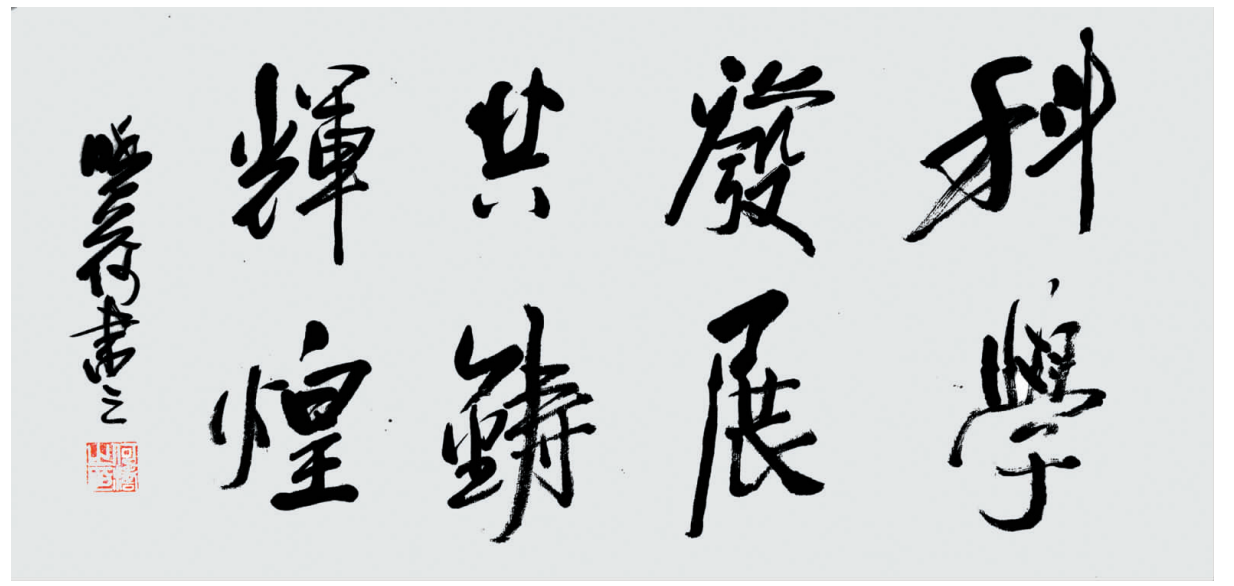 科學
發展
共鑄
輝煌
書之